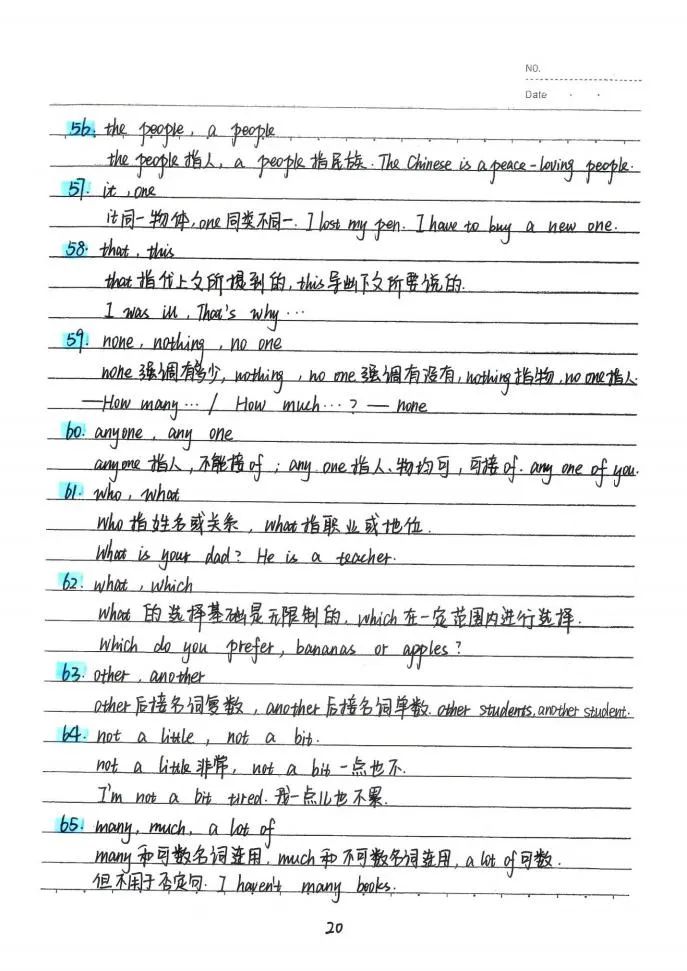 NO.
Date
56. the people, a people
the people 指人, a people 指民族. The Chinese is a peace-loving people.
57. it, one
it同一物体, one同类不同一. I lost my pen. I have to buy a new one.
58. that, this
that 指代上文所提到的, this导出下文所要说的.
I was ill, That's why ···
59. none, nothing, no one
none 强调有多少, nothing, no one 强调有没有, nothing指物, no one指人.
—How many ··· / How much ··· ? — none
60. anyone, any one
anyone 指人, 不能接 of ; any one 指人、物均可, 可接 of. any one of you.
61. who, what
who 指姓名或关系, what 指职业或地位.
What is your dad? He is a teacher.
62. what, which
what 的选择基础是无限制的, which 在一定范围内进行选择.
Which do you prefer, bananas or apples?
63. other, another
other后接名词复数, another后接名词单数. other students, another student.
64. not a little, not a bit.
not a little 非常, not a bit 一点也不.
I'm not a bit tired. 我一点儿也不累.
65. many, much, a lot of
many 和可数名词连用, much 和不可数名词连用, a lot of 可数.
但不用于否定句. I haven't many books.
20